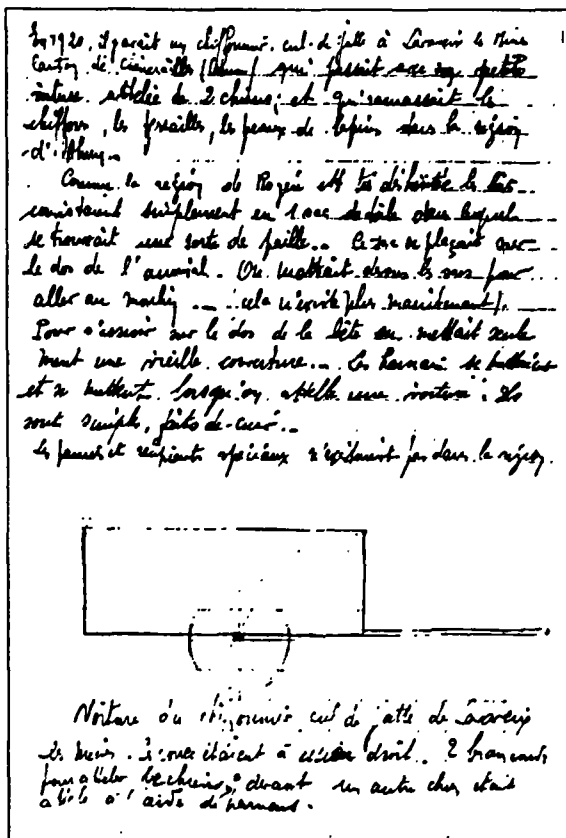 En 1920, il paraît un chiffonnier cul-de-jatte à Lavaveix les Mines
Canton de qui passait avec sa petite
voiture attelée de 2 chiens; et qu'ramassait les
chiffons, les ferrailles, les peaux de lapins dans la région
d'Ahun.
Comme la région de est très déshéritée les
consistaient simplement en 1 sac de toile dans lequel
se trouvait une sorte de paille.. Ce sac se plaçait sur
le dos de l'animal. On mettait dessus les sacs pour
aller au moulin ... cela n'existe plus maintenant).
Pour s'asseoir sur le dos de la bête on mettait seule
ment une vieille couverture... Les harnais se mettaient
et se mettent lorsqu'on attelle une voiture: Ils
sont simples, faits de cuir..
les et récipients spéciaux n'existaient pas dans la région.
Voiture du chiffonnier cul de jatte de Lavaveix
les Mines. étaient à droit. 2 brancards
pour atteler le chien, devant un autre chien était
attelé à l'aide d'harnais.